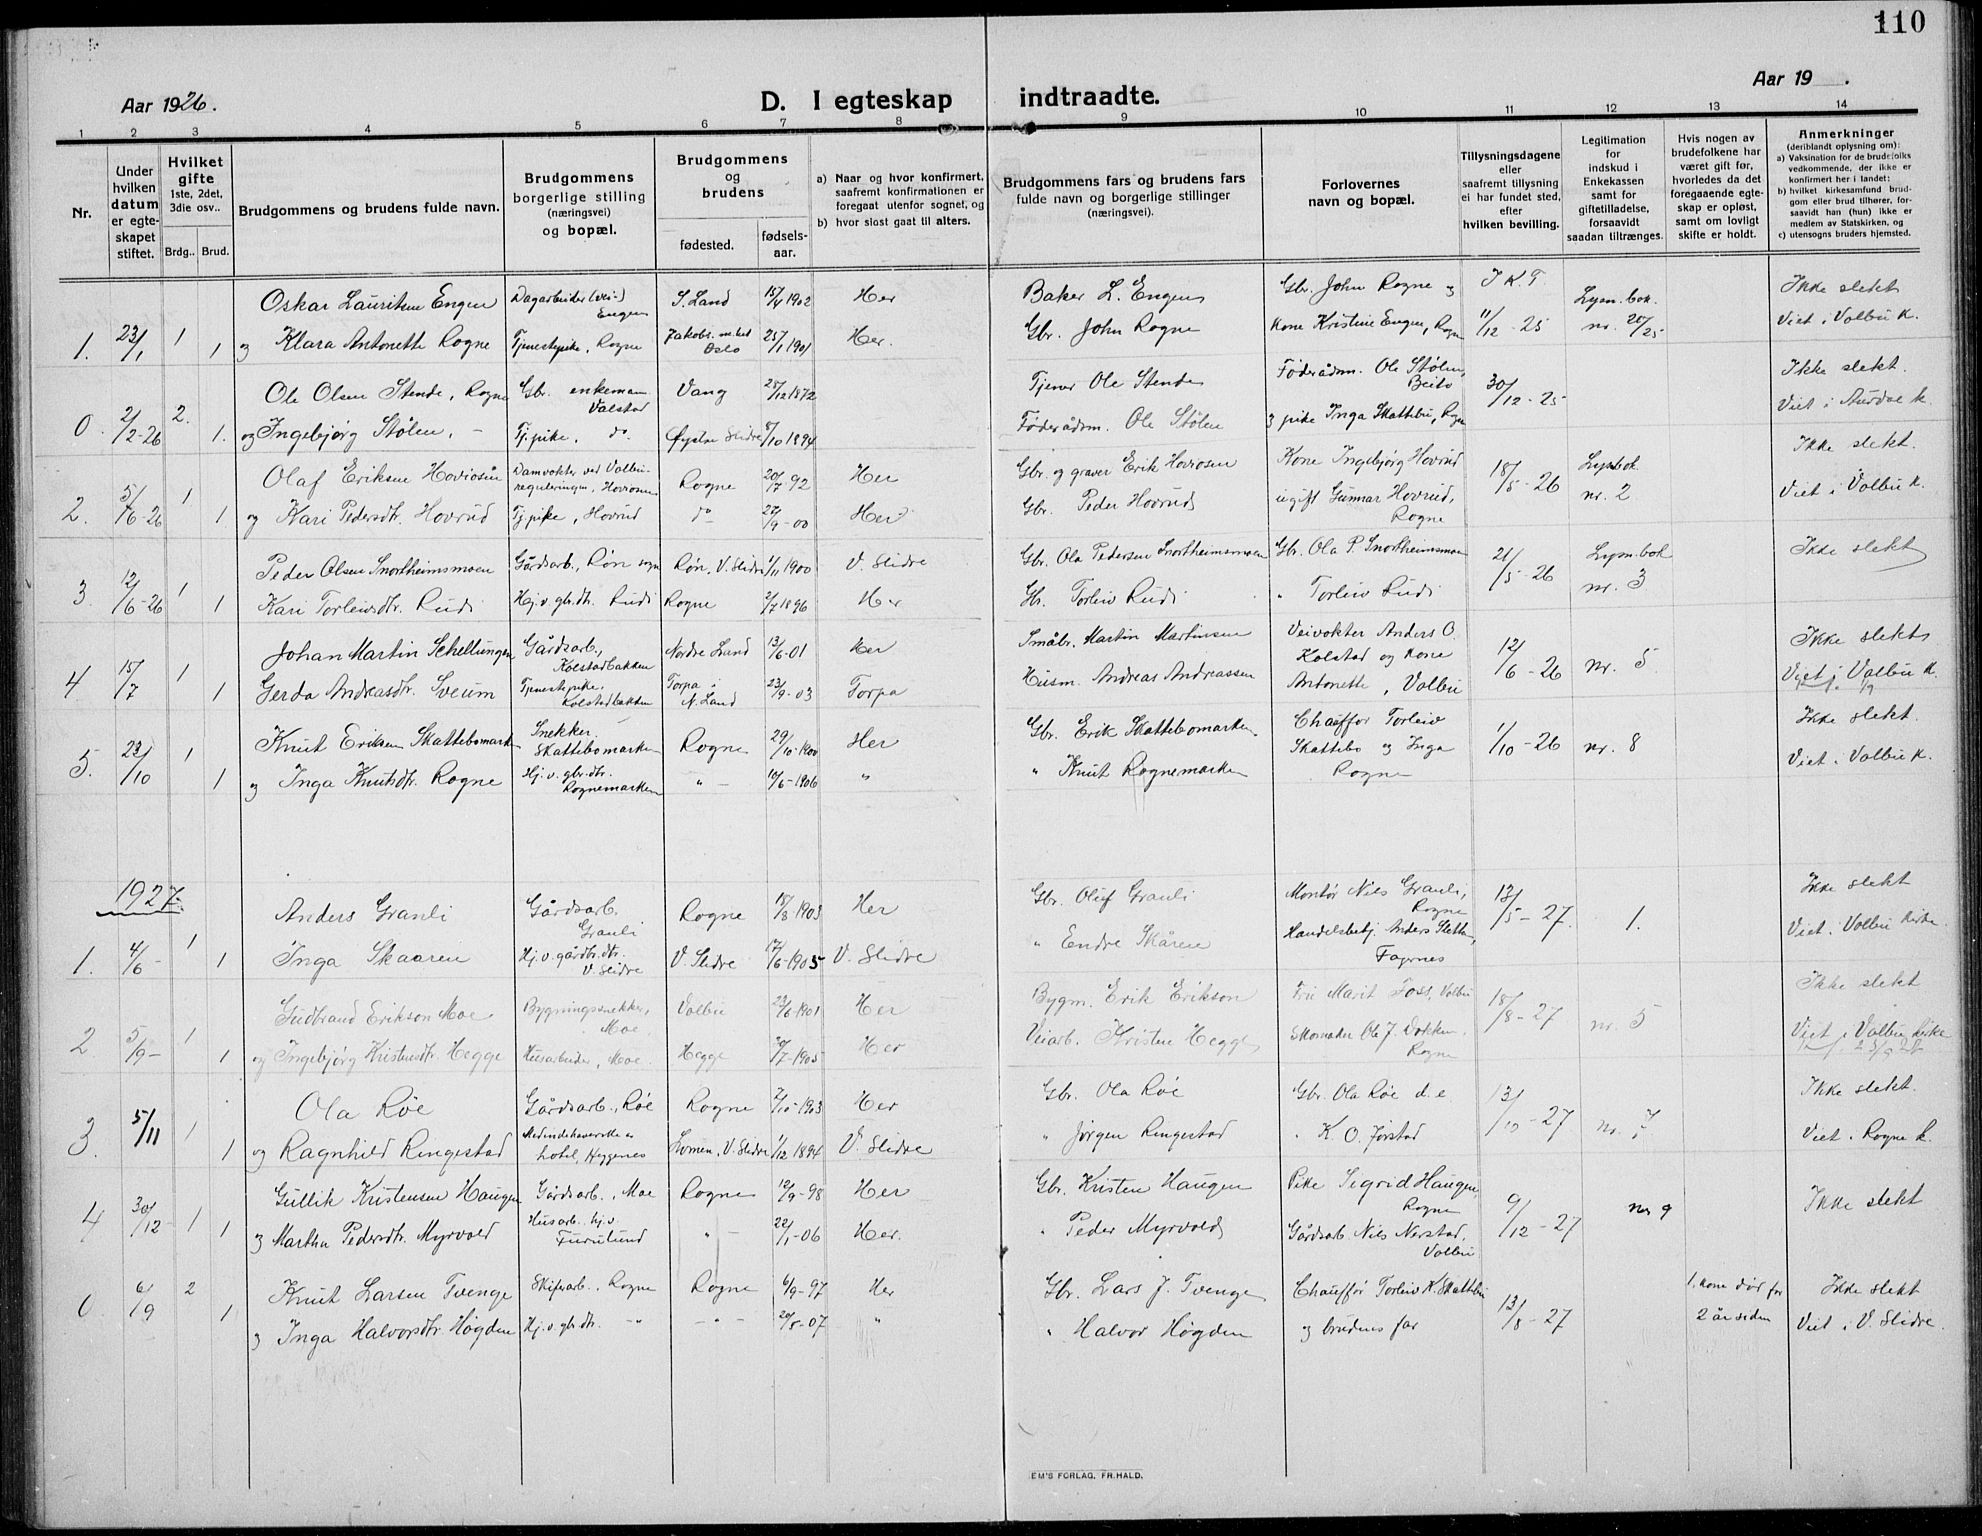 110
Aar 1926.
D. I egteskap indtraadte.
Aar 19 .
1 2 3 4 5 6 7 8 9 10 11 12 13 14
Nr.
Under hvilken datum er egteskapet stiftet.
Hvilket gifte 1ste, 2det, 3die osv..
Brdg.. Brud.
Brudgommens og brudens fulde navn.
Brudgommens borgerlige stilling (næringsvei) og bopæl.
Brudgommens og brudens
fødested. fødselsaar.
a) Naar og hvor konfirmert, saafremt konfirmationen er foregaat utenfor sognet, og
b) hvor sidst gaat til alters.
Brudgommens fars og brudens fars fulde navn og borgerlige stillinger (næringsvei).
Forlovernes navn og bopæl.
Tillysningsdagene eller saafremt tillysning ei har fundet sted, efter hvilken bevilling.
Legitimation for indskud i Enkekassen samt for giftetilladelse, forsaavidt saadan tiltrænges.
Hvis nogen av brudefolkene har været gift før, hvorledes da det foregaaende egteskap er opløst, samt om lovligt skifte er holdt.
Anmerkninger (deriblandt oplysning om):
a) Vaksination for de brudefolks vedkommende, der ikke er konfirmert her i landet;
b) hvilket kirkesamfund brudgom eller brud tilhører, forsaavidt han (hun) ikke er medlem av Statskirken, og
c) utensogns bruders hjemsted.
Oskar Lauritsen Engen Dagarbeider (vei-) Engen S. Land 15/4 1902 Her Baker L. Engen Gbr. John Rogne og Lysn. bok. Ikke slekt
1. 23/1 1 1 og Klara Antonette Rogne Tjenestepike, Rogne Jakobs m.hed Oslo 25/1 1901 Her. Gbr. John Rogne kone Kristine Engen, Rogne 11/12-25 nr. 20/25 Viet i Volbu k.
Ole Olsen Stende, Rogne Gbr. enkeman Valstad Vang 28/12 1872 Tjener Ole Stende Føderådsm. Ole Stølen, Beito 30/12-25 Ikke slekt.
0. 2/2-26 2. 1. og Ingebjørg Stølen, - Tj.pike, do. Øystre Slidre 8/10 1894 Føderådsm. Ole Stølen og pike Inga Skattebu, Rogne Viet i Aurdal k.
Olaf Eriksen Hovrosen Damvokter ved Volbureguleringen, Hovrosen Rogne 20/7-92 Her Gbr. og graver Erik Hovrosen Kone Ingebjørg Hovrud 18/5-26 Lysn.bok Ikke slekt.
2. 5/6-26 1 1. og Kari Pedersdtr. Hovrud Tj.pike, Hovrud do 27/9-00 Her Gbr. Peder Hovrud ugift Gunnar Hovrud, Rogne nr. 2 Viet i Volbu k.
Peder Olsen Snortheimsmoen Gårdsarb., Røn sogn Røn, V. Slidre 1/11 1900 V. Slidre Gbr. Ola Pedersen Snortheimsmoen Gbr. Ola P. Snortheimsmoen 21/5-26 Lysn.bok Ikke slekt
3. 12/6-26 1 1 Kari Torleivsdtr. Rudi Hj.v. gbr.dtr. Rudi Rogne 2/7 1896 Her Gbr. Torleiv Rudi " Torleiv Rudi nr. 3
Johan Martin Schellungen Gårdsarb., Kolstadbakken Nordre Land 13/6-01 Her Småbr. Martin Martinsen Veivokter Anders O. Kolstad og kone 12/6-26 nr. 5 Ikke slekt
4 15/7 1 1 Gerda Andreasdtr. Sveum Tjenestepike, Kolstadbakken Torpa i N. Land 23/9-03 Torpa Husm. Andreas Andreassen Antonette, Volbu Viet i Volbu k.
Knut Eriksen Skattebomarken Snekker. Skattebomarken Rogne 29/10-1900 Her Gbr. Erik Skattebomarken. Chauffør Torleiv Skattebo og Inga 1/10-26 nr. 8 Ikke slekt.
5. 23/10 1 1 og Inga Knutsdtr. Rogne Hj.v. gbr.dtr. Rognemarken " - 10/6-1906 " " Knut Rognemarken Rogne Viet i Volbu k.
1927.
Anders Granli Gårdsarb. Granli Rogne 18/8 1903 Her Gbr. Oluf Granli Montør Nils Granli, Rogne 13/5-27. 1. Ikke slekt
1. 4/6- 1 1 Inga Skaaren Hj.v. gårdbr.dtr. V. Slidre V. Slidre 17/6-1905 V. Slidre " Endre Skåren Handelsbetj. Anders Sletta, Fagernes Viet i Volbu kirke.
Gudbrand Erikson Moe Bygningssnekker, Moe. Volbu 23/6-1901 Her Bygm. Erik Erikson Fru Marit Foss, Volbu 18/8-27 nr. 5 Ikke slekt
2 5/9- 1 1 og Ingebjørg Kristensdtr. Hegge Husarbeider, Moe. Hegge 20/7-1905 Her Veiarb. Kristen Hegge Skomaker Ola J. Dokken. Rogne Viet i Volbu kirke
Ola Røe Gårdsarb., Røe Rogne 2/10-1903 Her Gbr. Ola Røe Gbr. Ola Røe d.e. 13/10-27 nr. 7 Ikke slekt.
3. 5/11 1 1 og Ragnhild Ringestad Medindehaverske av hotel, Heggenes Lomen, V. Slidre 1/12 1894 V. Slidre " Jørgen Ringestad " K. O. Jørstad Viet i Rogne k.
Gullik Kristensen Haugen Gårdsarb., Moe Rogne 12/9-98 Her Gbr. Kristen Haugen Pike Sigrid Haugen, Rogne 9/12-27 nr 9 Ikke slekt
4 30/12- 1 1 og Martha Pedersdtr. Myrvold Husarb. hj.v. Furulund " - 22/1-06 Her. " Peder Myrvold Gårdsarb. Nils Nerstad, Volbu
Knut Larsen Tvenge Skiferarb., Rogne Rogne 6/9-97 Her Gbr. Lars J. Tvenge Chauffør Torleiv K. Skattebu 13/8-27 1. kone død for Ikke slekt
0. 6/9 2 1 og Inga Halvorsdtr. Høgden Hj.v. gbr.dtr. " - " - 20/8-07 " " Halvor Høgden og brudens far 2 år siden Viet i V. Slidre.
EM'S FORLAG, FR.HALD.